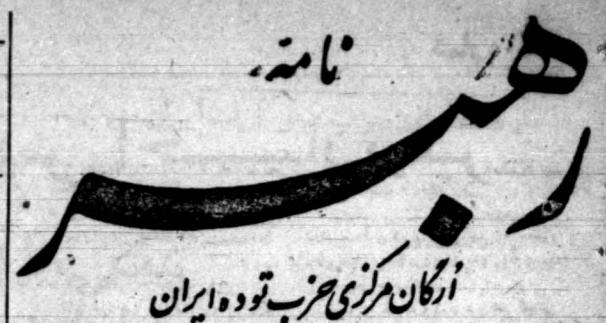 نامهٔ
رهبر
أرگان مرکزی حزب توده ایران